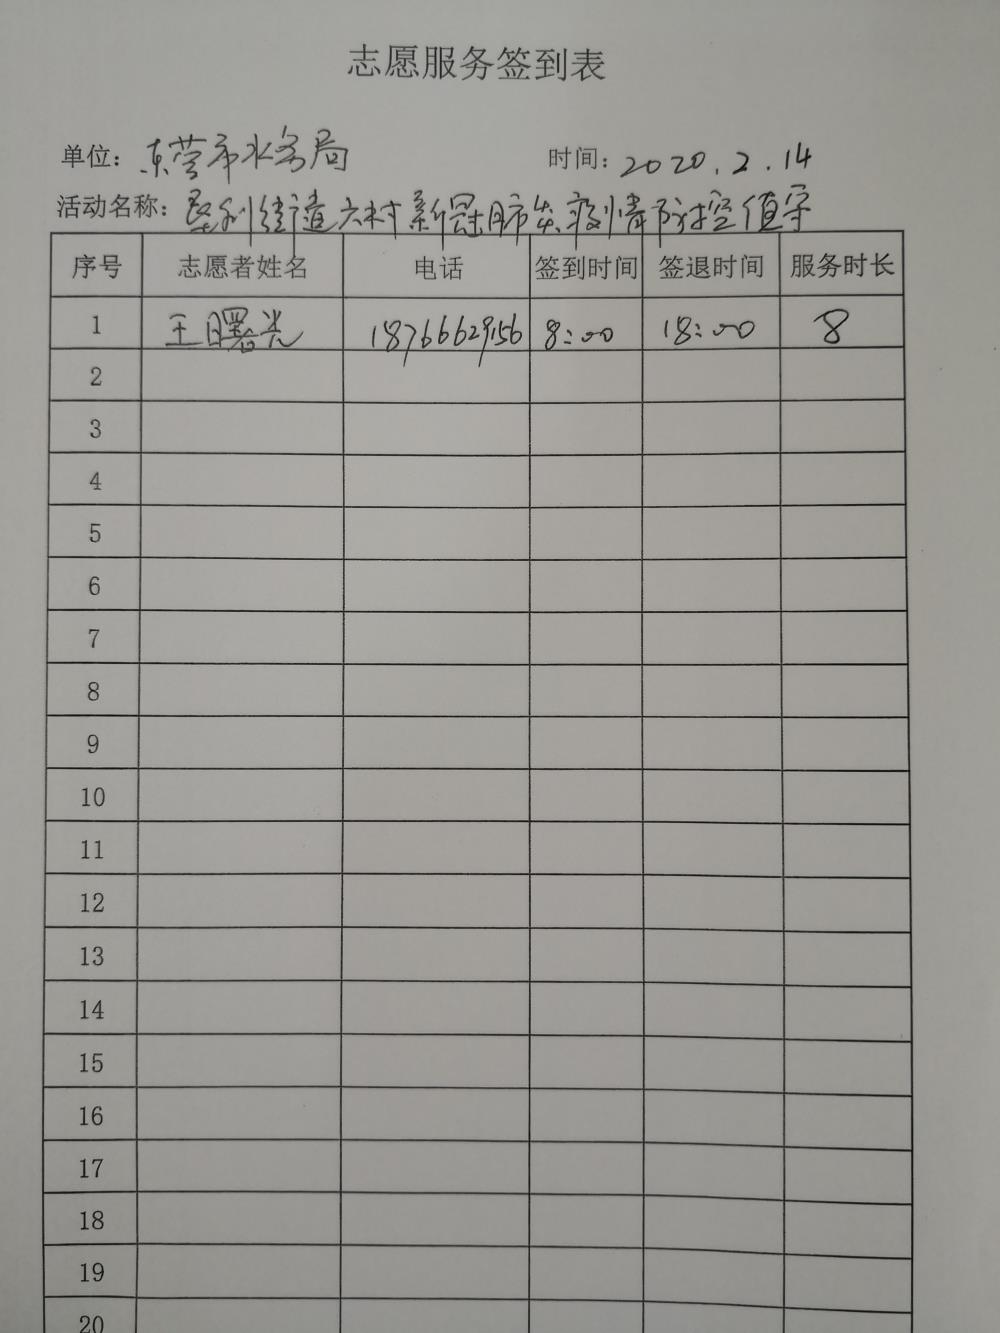 志愿服务签到表
单位：东营市水务局 时间：2020.2.14
活动名称：垦利街道六村新冠肺炎疫情防控值守
序号 志愿者姓名 电话 签到时间 签退时间 服务时长
1 王曙光 18766629156 8:00 18:00 8
2
3
4
5
6
7
8
9
10
11
12
13
14
15
16
17
18
19
20